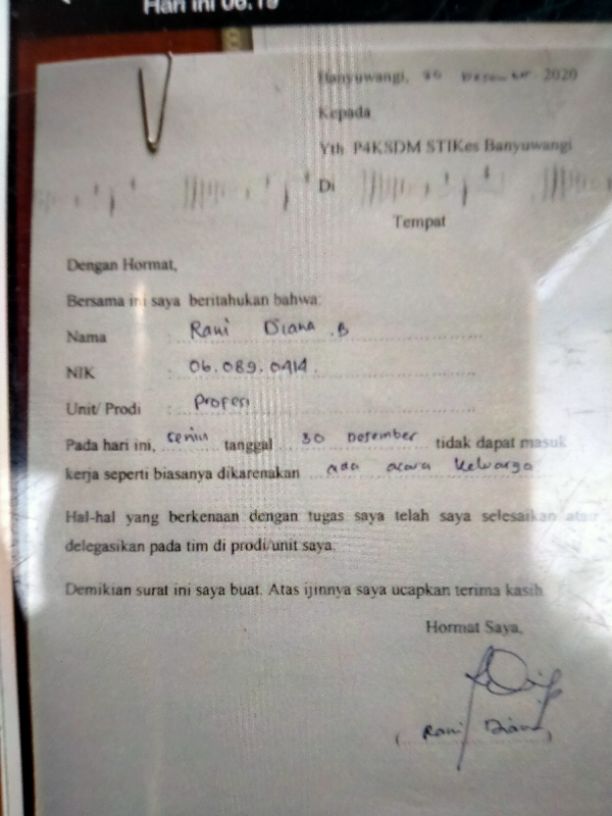 Hari ini 06.19
Banyuwangi, 30 Desember 2020
Kepada
Yth P4KSDM STIKes Banyuwangi
Di
Tempat
Dengan Hormat,
Bersama ini saya beritahukan bahwa:
Nama : Rani Diana .B
NIK : 06.089.0414
Unit/ Prodi : Profesi
Pada hari ini, senin tanggal 30 Desember tidak dapat masuk
kerja seperti biasanya dikarenakan ada acara keluarga
Hal-hal yang berkenaan dengan tugas saya telah saya selesaikan atau
delegasikan pada tim di prodi/unit saya.
Demikian surat ini saya buat. Atas ijinnya saya ucapkan terima kasih.
Hormat Saya,
( Rani Diana )